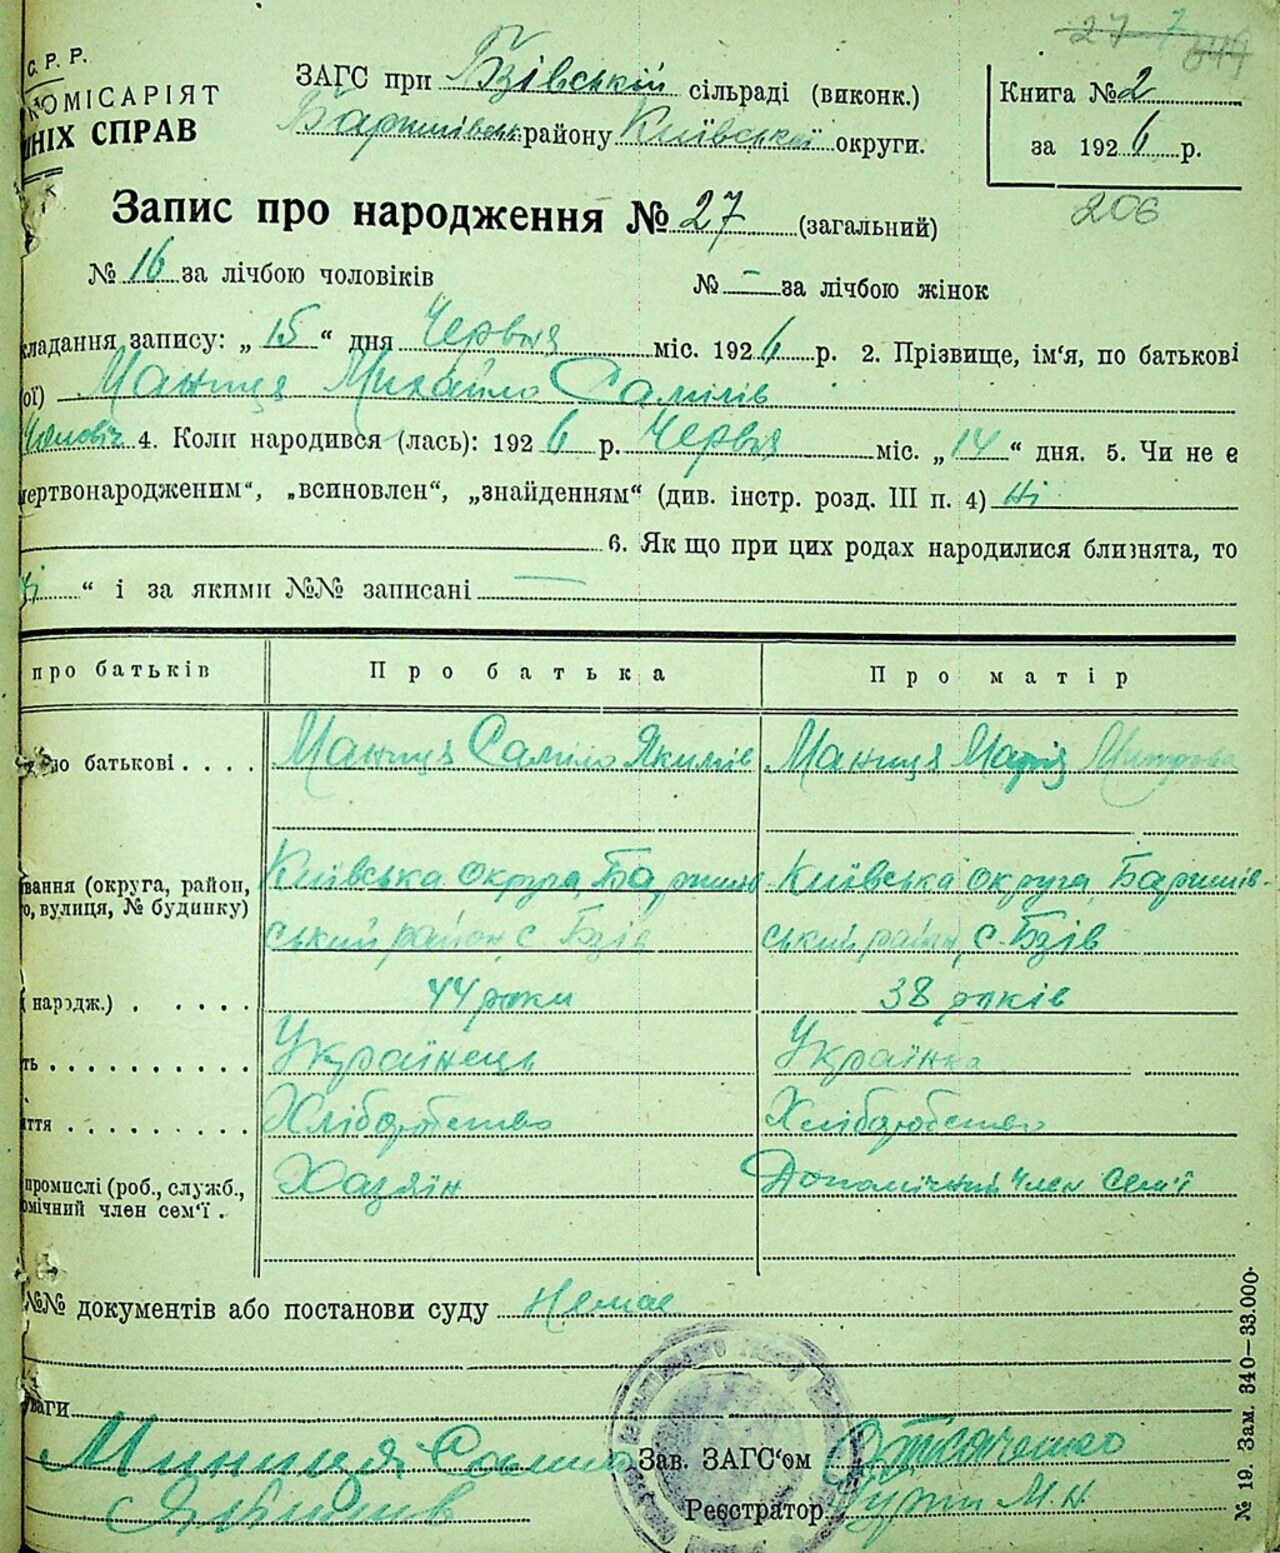 27 7
С. Р. Р.
КОМІСАРІЯТ
СПРАВ
ЗАГС при Бзівській сільраді (виконк.)
Баришівськ. району Київської округи.
Книга № 2
за 1926 р.
206
Запис про народження № 27 (загальний)
№ 16 за лічбою чоловіків № – за лічбою жінок
кладання запису: „ 15 “ дня Червня міс. 1926 р. 2. Прізвище, ім‘я, по батькові
ої) Маниця Михайло Самілів
4. Коли народився (лась): 1926 р. Червня міс. „ 14 “ дня. 5. Чи не є
мертвонародженим“, „всиновлен“, „знайденням“ (див. інстр. розд. III п. 4) ні
6. Як що при цих родах народилися близнята, то
“ і за якими №№ записані —
про батьків Про батька Про матір
по батькові . . . . Маниця Саміло Якимів Маниця Марія
вання (округа, район, Київська округа, Баришів Київська округа, Баришів-
о, вулиця, № будинку) ський район, с Бзів ський район, с. Бзів
народж.) . . . . . 44 роки 38 років
ть . . . . . . . . . . Українець Українка
ття . . . . . . . . . Хліборобство Хліборобство
промислі (роб., служб., Хазяїн Допомічний член сем‘ї
мічний член сем‘ї .
№№ документів або постанови суду Немає
ваги
Саміло Зав. ЗАГС‘ом Ткаченко
Якимів Реєстратор М. Н.
№ 19. Зам. 340—33.000.